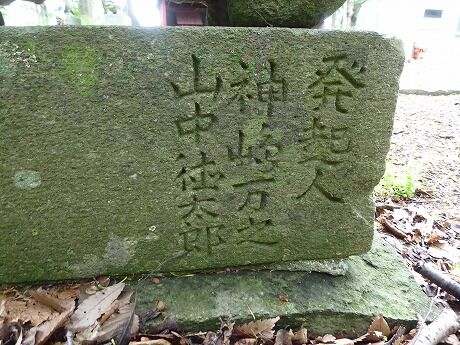 発起人
神崎万之
山中徳太郎